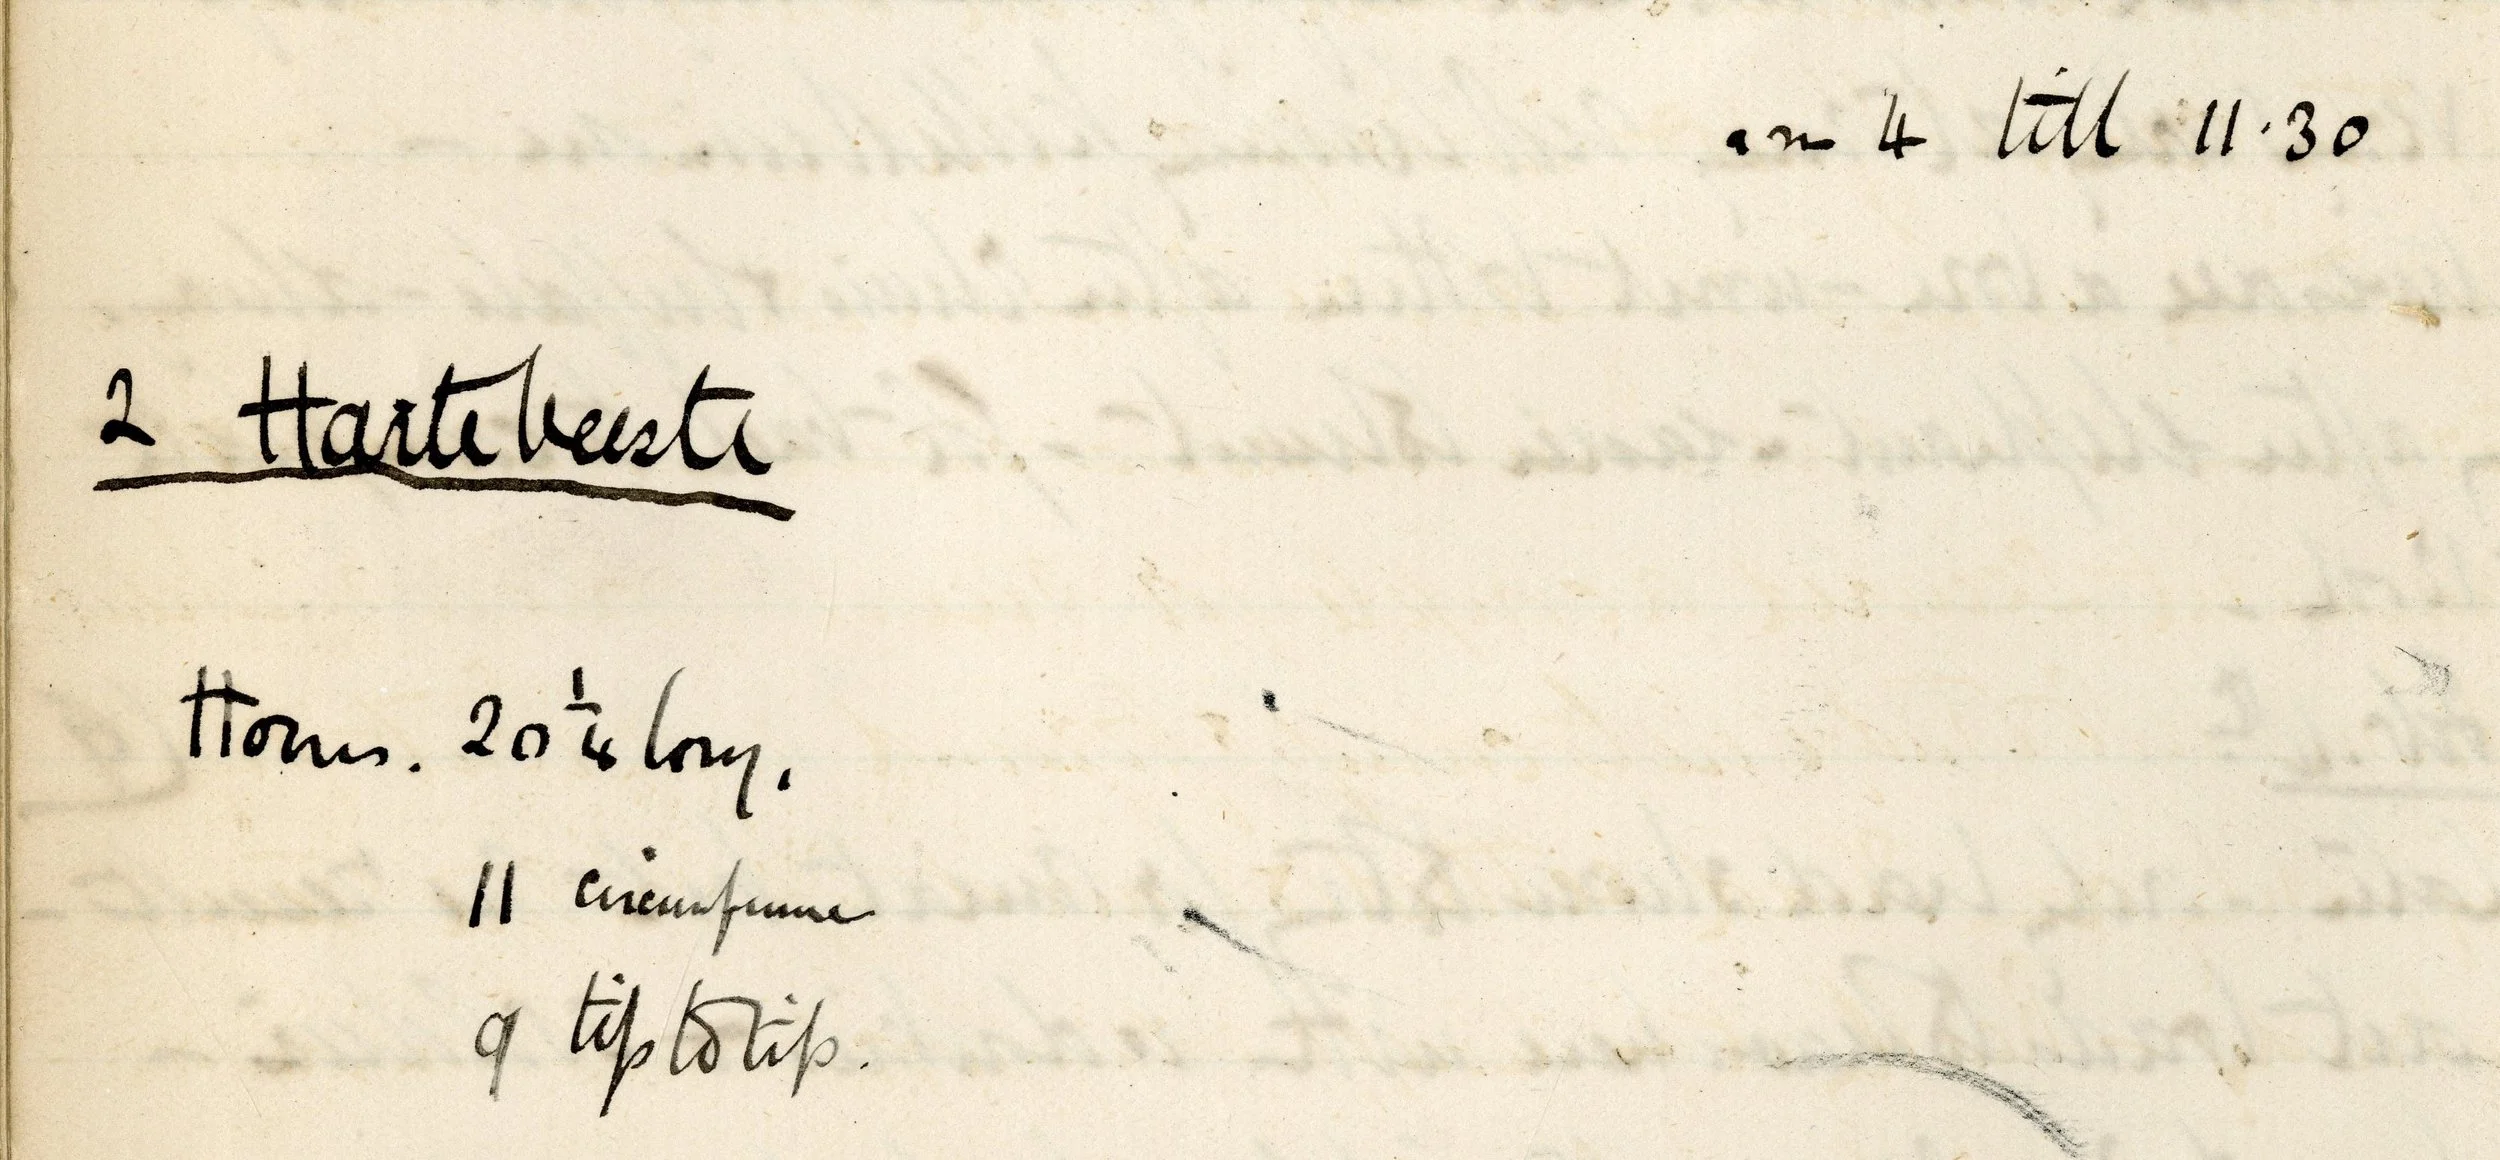 am 4 till 11·30
2 Hartebeeste
Horns. 20 1/4 long.
11 circumference
9 tip to tip.